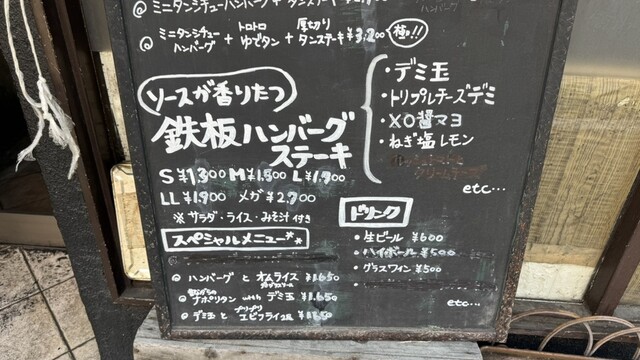 ◎ ミニタンシチューハンバーグ + タンステーキ
ハンバーグ
◎ ミニタンシチューハンバーグ + トロトロゆでタン + 厚切りタンステーキ ¥3,200 極!!
ソースが香りたつ
鉄板ハンバーグ
ステーキ
S ¥1300 M ¥1.500 L ¥1.700
LL ¥1900 メガ ¥2.700
※ サラダ・ライス・みそ汁付き
・デミ玉
・トリプルチーズデミ
・XO醤マヨ
・ねぎ塩レモン
etc...
スペシャルメニュー**
◎ ハンバーグ と オムライス ¥1.650
◎ 昔ながらのナポリタン with デミ玉 ¥1.650
◎ デミ玉 と プリプリエビフライ
ドリンク
・生ビール ¥600
・ハイボール ¥500
・グラスワイン ¥500
etc...